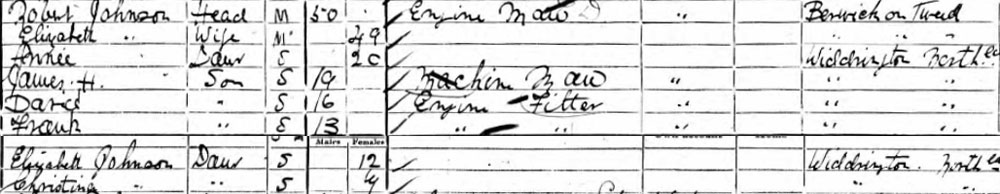 Robert Johnson Head M 50 Engine Man " Berwick on Tweed
Elizabeth " Wife M 49 " " "
Annie Daur S 20 Widdrington Northld
James H. Son S 19 Machine Man " " "
" S 16 Engine Fitter " " "
Frank " S 13 " " " " "
Males Females
Elizabeth Johnson Daur S 12 Widdrington Northld
Christina " " S 4 " "